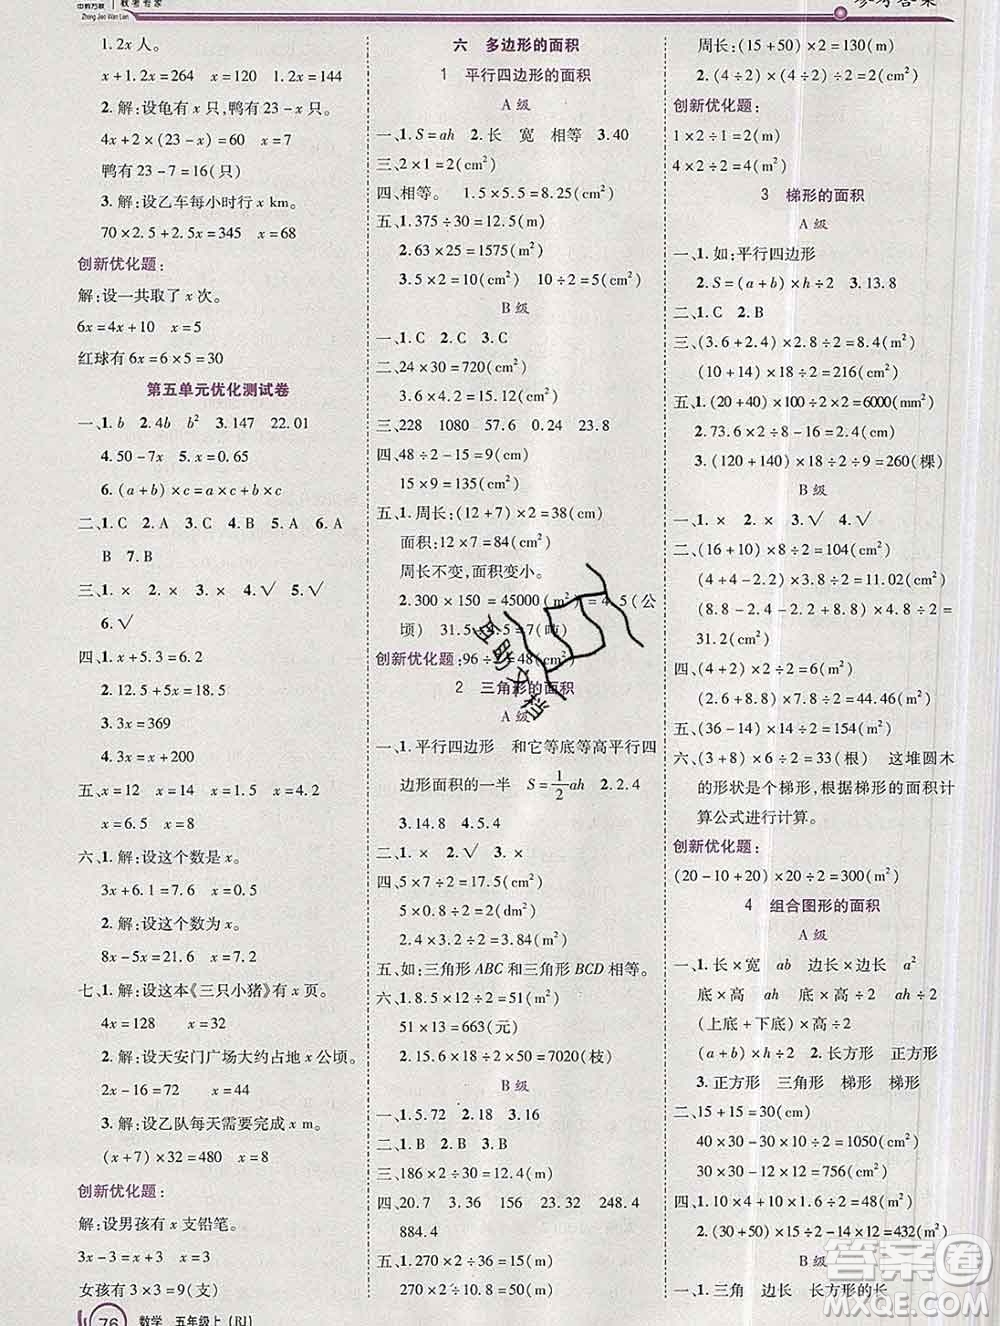 中教万联
教考专家
Zhong Jiao Wan Lian
参考答案
1.2x人。
x+1.2x=264 x=120 1.2x=144
2.解:设龟有x只,鸭有23-x只。
4x+2×(23-x)=60 x=7
鸭有23-7=16(只)
3.解:设乙车每小时行x km。
70×2.5+2.5x=345 x=68
创新优化题:
解:设一共取了x次。
6x=4x+10 x=5
红球有6x=6×5=30
第五单元优化测试卷
一、1.b 2.4b b² 3.147 22.01
4.50-7x 5.x=0.65
6.(a+b)×c=a×c+b×c
二、1.C 2.A 3.C 4.B 5.A
B 7.B
三、1.× 2.× 3.× 4.√ 5.√
6.√
四、1.x+5.3=6.2
2.12.5+x=18.5
3.3x=369
4.3x=x+200
五、x=12 x=14 x=1.8
x=6.5 x=8
六、1.解:设这个数是x。
3x+6.1=7.6 x=0.5
2.解:设这个数为x。
x-0.4x=12 x=20
七、1.解:设这本《三只小猪》有x页。
4x=128 x=32
2.解:设天安门广场大约占地x公顷。
2x-16=72 x=44
3.解:设乙队每天需要完成x m。
(x+7)×32=480 x=8
创新优化题:
解:设男孩有x支铅笔。
3x-3=x+3 x=3
女孩有3×3=9(支)
76 数学 五年级上(RJ)
六 多边形的面积
1 平行四边形的面积
A级
一、1.S=ah 2.长 宽 相等 3.40
三、2×1=2(cm²)
四、相等。 1.5×5.5=8.25(cm²)
五、1.375÷30=12.5(m)
2.63×25=1575(m²)
3.5×2=10(cm²) 10÷2=5(cm²)
B级
一、1.C 2.C 3.C
二、24×30=720(cm²)
3.6×4.2=15.12(cm²)
三、228 1080 57.6 0.24 23.8
四、48÷2-15=9(cm)
15×9=135(cm²)
五、1.周长:(12+7)×2=38(cm)
面积:12×7=84(cm²)
周长不变,面积变小。
2.300×150=45000(m²)=4.5(公
顷) 31.5÷4.5=7(吨)
创新优化题:96÷2=48(cm²)
2 三角形的面积
A级
一、1.平行四边形 和它等底等高平行四
边形面积的一半 S=1/2ah 2.2.4
3.14.8 4.5.4
二、1.× 2.√ 3.×
四、5×7÷2=17.5(cm²)
5×0.8÷2=2(dm²)
2.4×3.2÷2=3.84(m²)
五、如:三角形ABC和三角形BCD相等。
六、1.8.5×12÷2=51(m²)
51×13=663(元)
2.15.6×9÷2×100=7020(枝)
B级
一、1.5.72 2.18 3.16
二、1.B 2.B 3.B
三、186×2÷30=12.4(m)
四、20.7 3.36 156 23.32 248.4
884.4
五、1.270×2÷36=15(m)
2.270×2÷45=12(m)
周长:(15+50)×2=130(m)
2.(4÷2)×(4÷2)÷2=2(cm²)
创新优化题:
1×2÷1=2(m)
4×2÷2=4(m²)
3 梯形的面积
A级
一、1.如:平行四边形
2.S=(a+b)×h÷2 3.13.8
二、1.C 2.B
三、(3.6+2.4)×2.8÷2=8.4(cm²)
(10+14)×18÷2=216(cm²)
五、1.(20+40)×100÷2×2=6000(mm²)
2.73.6×2÷8-16=2.4(cm)
3.(120+140)×18÷2÷9=260(棵)
B级
一、1.× 2.× 3.√ 4.√
二、(16+10)×8÷2=104(cm²)
(4+4-2.2)×3.8÷2=11.02(cm²)
(8.8-2.4+8.8-2.4+3.2)×4÷2=
31.2(cm²)
四、(4+2)×2÷2=6(m²)
(2.6+8.8)×7.8÷2=44.46(m²)
五、(36-14)×14÷2=154(m²)
六、(3+8)×6÷2=33(根) 这堆圆木
的形状是个梯形,根据梯形的面积计
算公式进行计算。
创新优化题:
(20-10+20)×20÷2=300(cm²)
4 组合图形的面积
A级
一、1.长×宽 ab 边长×边长 a²
底×高 ah 底×高÷2 ah÷2
(上底+下底)×高÷2
(a+b)×h÷2 2.长方形 正方形
3.正方形 三角形 梯形 梯形
二、15+15=30(cm)
40×30-30×10÷2=1050(cm²)
45×20-24×12÷2=756(cm²)
四、1.6×4+10×1.6÷2=48(m²)
2.(30+34)×15÷2-14×12=432(m²)
B级
一、1.三角 边长 长方形的长
答案圈
MXQE.COM